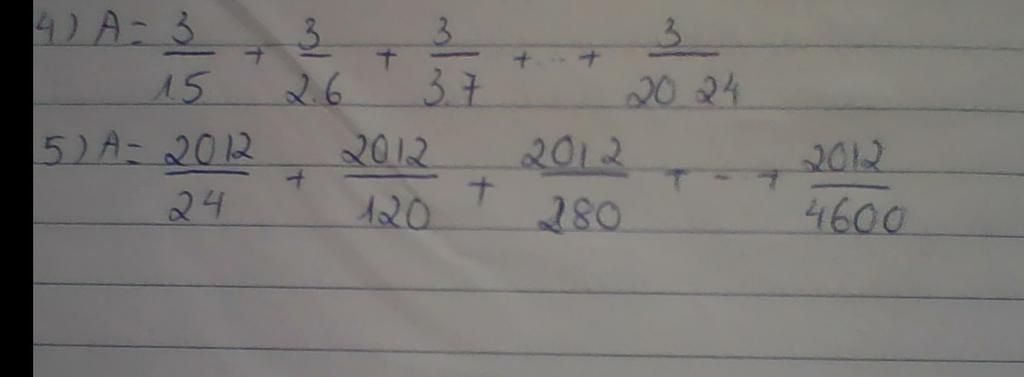 4) A = 3/1.5 + 3/2.6 + 3/3.7 + ... + 3/20 24
5) A = 2012/24 + 2012/120 + 2012/280 + ... + 2012/4600